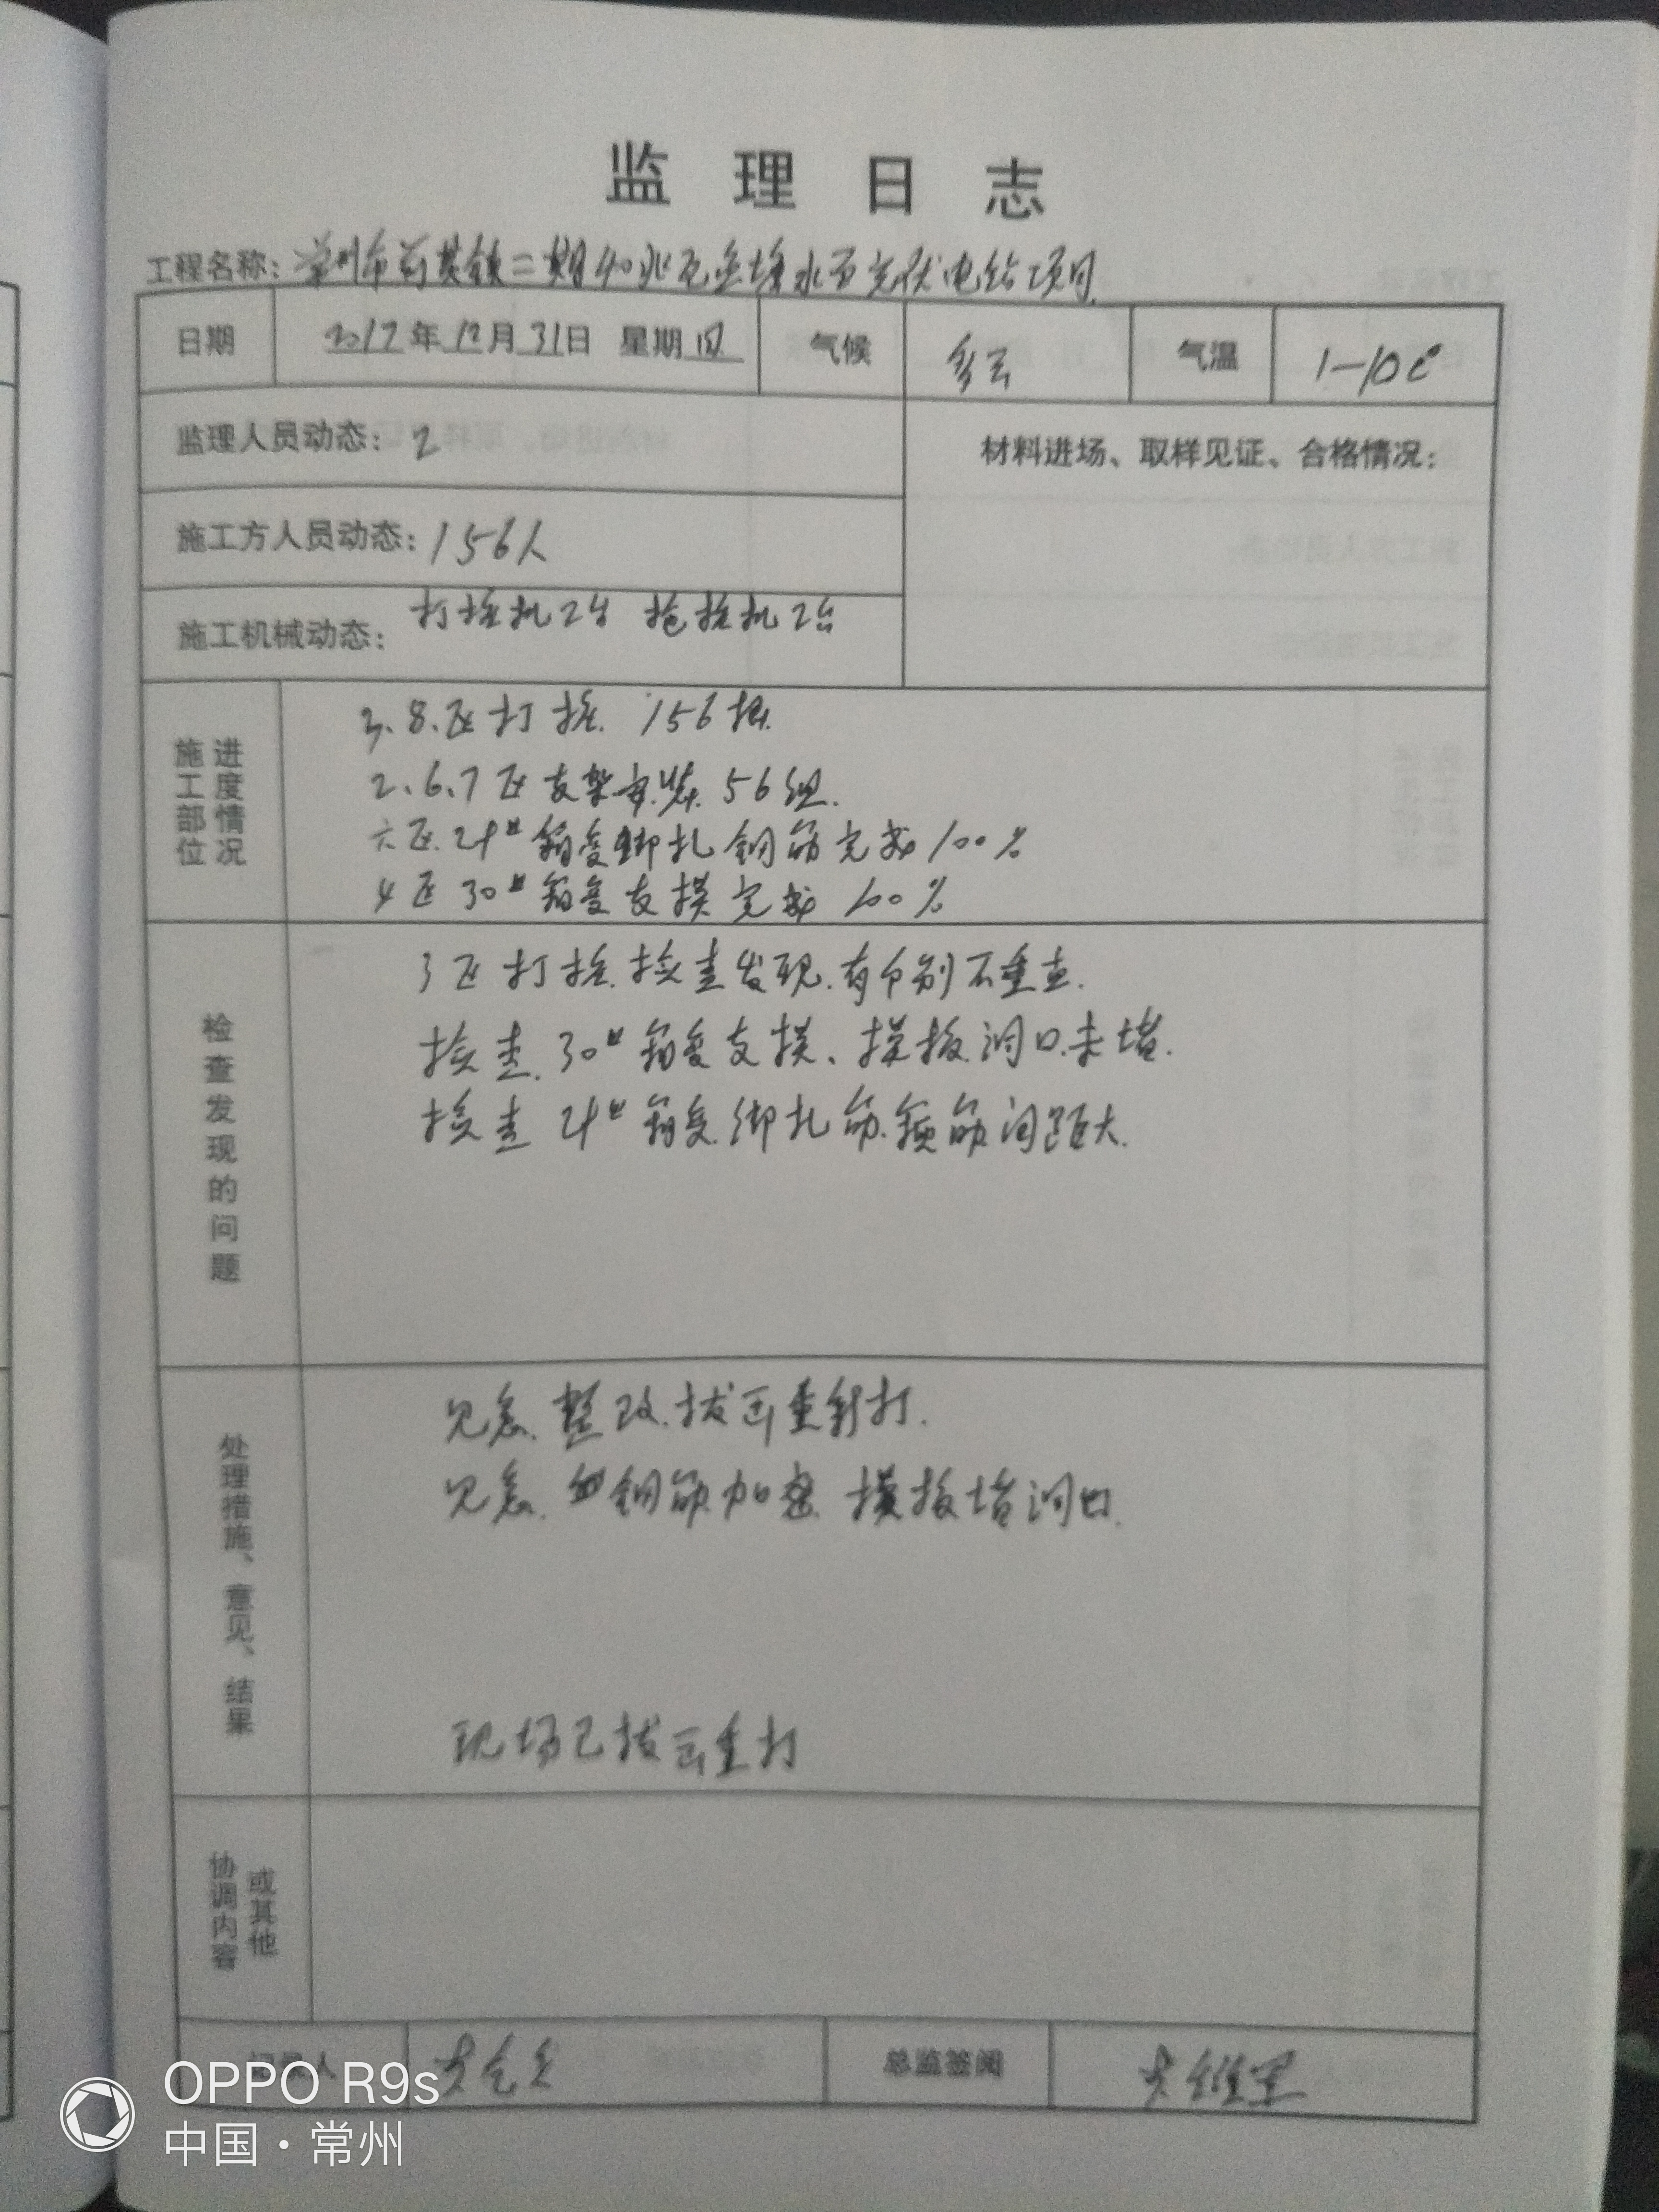 监理日志
工程名称: 常州市 二期40兆瓦 水面光伏电站项目
日期 2017年12月31日 星期日 气候 多云 气温 1-10℃
监理人员动态: 2 材料进场、取样见证、合格情况:
施工方人员动态: 156人
施工机械动态: 打桩机2台 拖桩机2台
施工部位 进度情况
3、8、区打桩 156根
2、6、7区支架安装 56组
六区24# 箱变绑扎钢筋完成100%
4区30#箱变支模完成100%
检查发现的问题
3区打桩检查发现有个别不垂直
检查30#箱变支模、模板洞口未堵
检查24#箱变绑扎筋箍筋间距大
处理措施、意见、结果
整改拔出重新打
钢筋加密 模板堵洞口
现场已拔出重打
协调内容 或其他
记录人 总监签阅
OPPO R9s
中国·常州